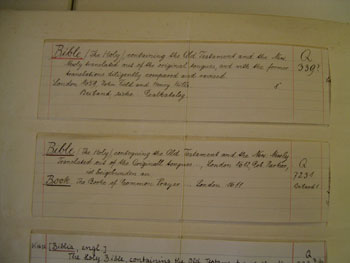 Bible (The Holy) containing the Old Testament and the New Q
Newly translated out of the original tongues, and with the former 3391
translations diligently compared and revised.
London 1659, John Field and Henry Hills
Bible (The Holy) containing the Old Testament and the New Newly Q
Translated out of the Originall tongues ..., London 1611, Rob. Barker, 7231
Book The Booke of Common Prayer ... London 1611
[Biblia, engl.] Q
The Holy Bible, containing the Old